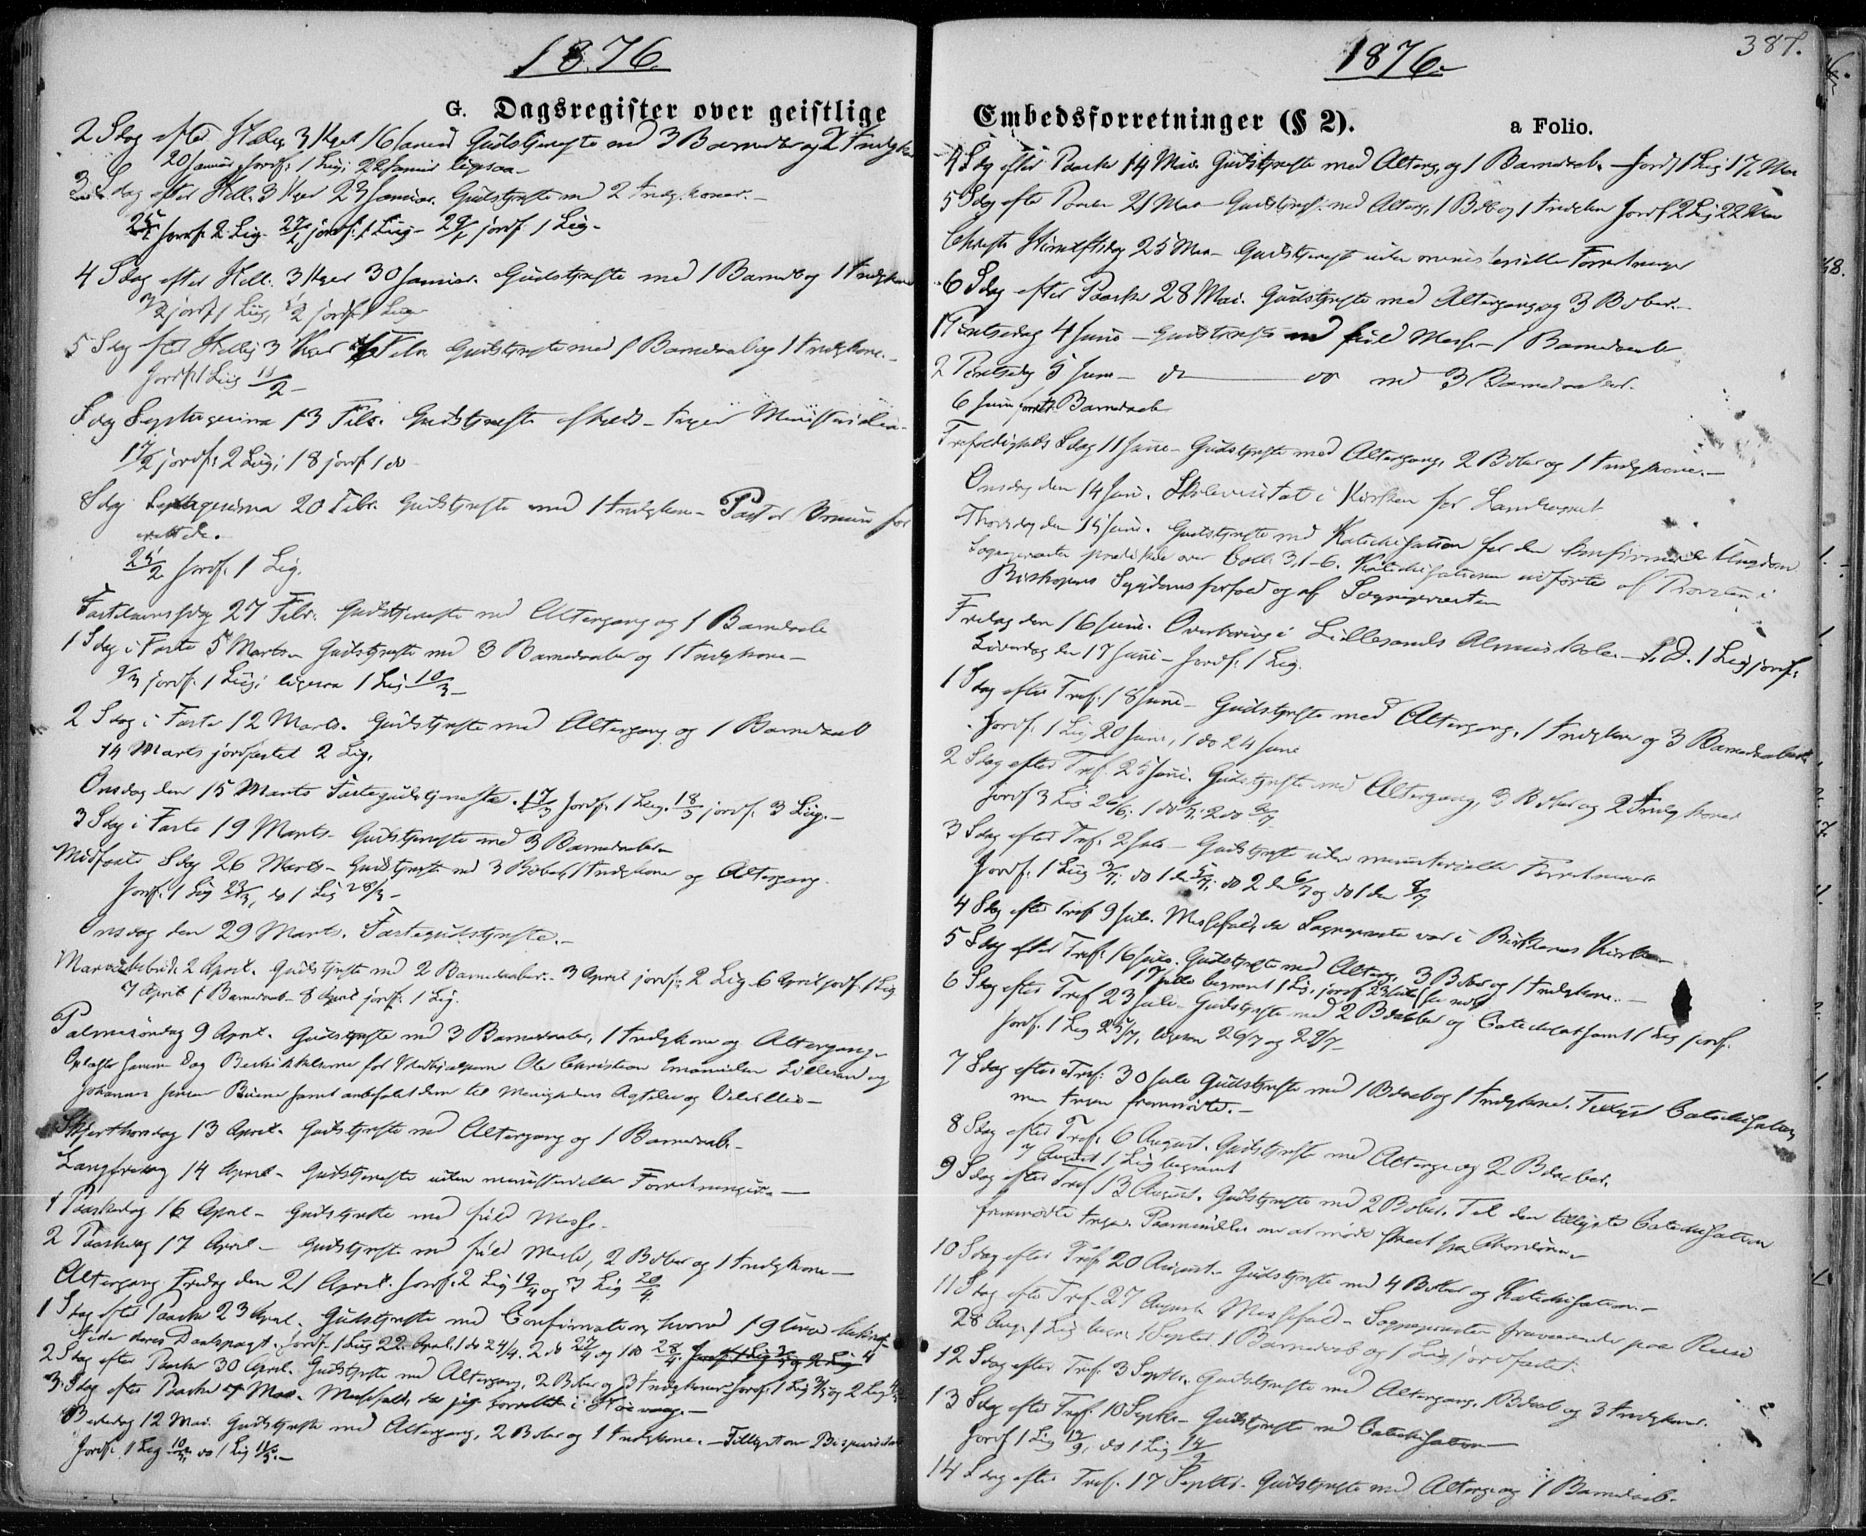 1876.
G. Dagsregister over geistlige
2 Sdag efter Hellig 3 Kger 16 Januar Gudstjeneste med 3 Barnedaab og 2
20 Januar Jordf. 1 Liig; 22 Januar ligesaa
3 Sdag efter Hell. 3 Kger 23 Januar. Gudstjeneste med 2 Indgkoner. -
25/1 Jordf. 2 Lig. jordf. 1 Liig - 29/1 jordf 1 Lig -
4 Sdag efter Hell. 3 Kger 30 Januar. Gudstjeneste med 1 Barnedb og 1
jordf 1 Liig, jordf. 1 Liig
5 Sdag efter Hellig 3 Kger 6 Febr. Gudstjeneste med 1 Barnedaab og 1 Indgkone. -
Jordf. 1 Liig
Sdag Septuagesima 13 Febr. Gudstjeneste - ingen Ministerialia -
17/2 jordf: 2 Liig; 18 jordf 1 do
Sdag 20 Febr. Gudstjeneste med 1 Indgkone - Pastor for
rettede.
Jordf. 1 Lig.
Fastelavnssdag 27 Febr. Gudstjeneste med Altergang og 1 Barnedaab
1 Sdag i Faste 5 Marts - Gudstjeneste med 3 Barnedaab og 1 Indgkone -
jordf. 1 Liig; ligesaa 1 Lig 10/3 -
2 Sdag i Faste 12 Marts. Gudstjeneste med Altergang og 1 Barnedaab
14 Marts jordfæstet 2 Lig.
Onsdag den 15 Marts Fastegudstjeneste. 17/3 Jordf. 1 Liig. 18/3 jordf. 3 Liig. -
3 Sdag i Faste 19 Marts - Gudstjeneste med 3 Barnedaab -
Midfaste Sdag 26 Marts - Gudstjeneste med 3 1 Indgkone og Altergang.
Jordf. 1 Lig 23/3, do 1 Lig 28/3 -
Onsdag den 29 Marts. Fastegudstjeneste. -
2 April. Gudstjeneste med 2 Barnedaaber. - 3 April jordf: 2 Lig - 6 April jordf. 1 Lig
7 April 1 Barnedaab - 8 April jordf. 1 Lig.
Palmesøndag 9 April. Gudstjeneste med 3 Barnedaaber, 1 Indgkone og Altergang -
Oplæste samme Dag for Ole Christian Emanuelsen Lillesand og
Johannes Jensen samt anbefalet dem til Menighedens Agtelse og
Skjærthorsdag 13 April. Gudstjeneste med Altergang og 1 Barnedaab. -
Langfredag 14 April - Gudstjeneste uden ministerielle Forretninger -
1 Paaskedag 16 April - Gudstjeneste med fuld Messe -
2 Paaskedag 17 April - Gudstjeneste med fuld Messe, 2 Bdber og 1 Indgkone -
Altergang Fredag den 21 April. Jordf. 2 Lig 19/4 og Lig 20/4
1 Sdag efter Paaske 23 April. Gudstjeneste med Confirmation, hvorved 19
deres Daabspagt. Jordf. 1 Liig 22 April. 1 do 24/4. 2 do og 1 do
2 Sdag efter Paaske 30 April. Gudstjeneste med Altergang, 2 Bdber og 3 Indgkoner - Jordf. 1 Lig og 2 Lig
3 Sdag efter Paaske 7 Mai. Messefald, da jeg forrettede i
Bededag 12 Mai. Gudstjeneste med Altergang, 2 Bdber og 1 Indgkone. - Tillyst
Jordf. 1 Lig do 1 Lig
1876.
387.
Embedsforretninger (§ 2).
a Folio.
4 Sdag efter Paaske 14 Mai. Gudstjeneste med Alterg. og 1 Barnedaab. - Jordf 1 Lig 17 Mai
5 Sdag efter Paaske 21 Mai - Gudstjeneste med Alterg. 1 Bdb og 1 Indgkone Jordf 2 Lig 22 Mai
Christi Himmelfartsdag 25 Mai - Gudstjeneste uden ministerielle Forretninger
6 Sdag efter Paaske 28 Mai. Gudstjeneste med Altergang og 3 Bdber. -
1 Pintsedag 4 Juni - Gudstjeneste med fuld Messe - 1 Barnedaab
2 Pintsedag 5 Juni - do do med 3 Barnedaaber.
6 Juni forrettet Barnedaab
Trefoldigheds Sdag 11 Juni - Gudstjeneste med Altergang, 2 Bdber og 1 Indgkone. -
Onsdag den 14 Juni. Skolevisitat i Kirken for Landsognet
Thorsdag den 15 Juni. Gudstjeneste med Katechisation for den konfirmerede Ungdom
Sognepræsten prædikede over Coll. 3, 1-6. Katechisationen udførtes af Provsten i
Biskopens Sygdomsforfald og af Sognepræsten
Fredag den 16 Juni. Overhøring i Lillesands Almueskole - S. D. 1 Lig jordf.
Løverdag den 17 Juni - Jordf. 1 Lig.
1 Sdag efter Tref. 18 Juni - Gudstjeneste med Altergang, 1 Indgkone og 3 Barnedaaber
Jordf. 1 Lig 20 Juni, 1 do 24 Juni
2 Sdag efter Tref. 25 Juni. Gudstjeneste med Altergang, 3 Bdber og 2 Indgkoner
Jordf 3 Lig 26/6; 1 do 2 do
3 Sdag efter Tref. 2 Juli - Gudstjeneste uden ministerielle Forretninger
Jordf. 1 Liig 3/7; do 1 den 5/7; do 2 den 6/7 og do 1 den 8/7
4 Sdag efter Tref 9 Juli. Messefald, da Sognepræsten var i Birkenes Kirke -
5 Sdag efter Tref. 16 Juli. Gudstjeneste med Alterg. 3 Bdber og 1 Indgkone. -
17 Juli begravet 1 Lig, jordf 23 Juli (se ned)
6 Sdag efter Tref 23 Juli - Gudstjeneste med 2 Bdaber og Catechisation samt 1 Lig jordf.
Jordf. 1 Lig 25/7, ligesaa 26/7 og 29/7 -
7 Sdag efter Tref. 30 Juli Gudstjeneste med 1 Bdaab og 1 Indgkone. Tillyst Catechisation
men ingen fremmødte. -
8 Sdag efter Tref. 6 August. Gudstjeneste med Alterg. og 2 Bdaaber.
7 August 1 Lig begravet
9 Sdag efter Tref 13 August. Gudstjeneste med 2 Bdber. Til den tillyste Catechisation
fremmødte ingen. Paamindelse om at møde skeet fra Chordøren -
10 Sdag efter Tref 20 August - Gudstjeneste med 4 Bdber og Katechisation. -
11 Sdag efter Tref. 27 August Messefald - Sognepræsten fraværende paa Reise
28 Aug. 1 Lig 1 Septbr 1 Barnedaab og 1 Lig jordfæstet.
12 Sdag efter Tref. 3 Septbr. Gudstjeneste med Altergang, 1 Bdaab og 3 Indgkoner.
13 Sdag efter Tref. 10 Septbr - Gudstjeneste med Catechisation -
Jordf 1 Lig do 1 Lig
14 Sdag efter Tref. 17 Septbr. Gudstjeneste med Alterg. og 1 Barnedaab.